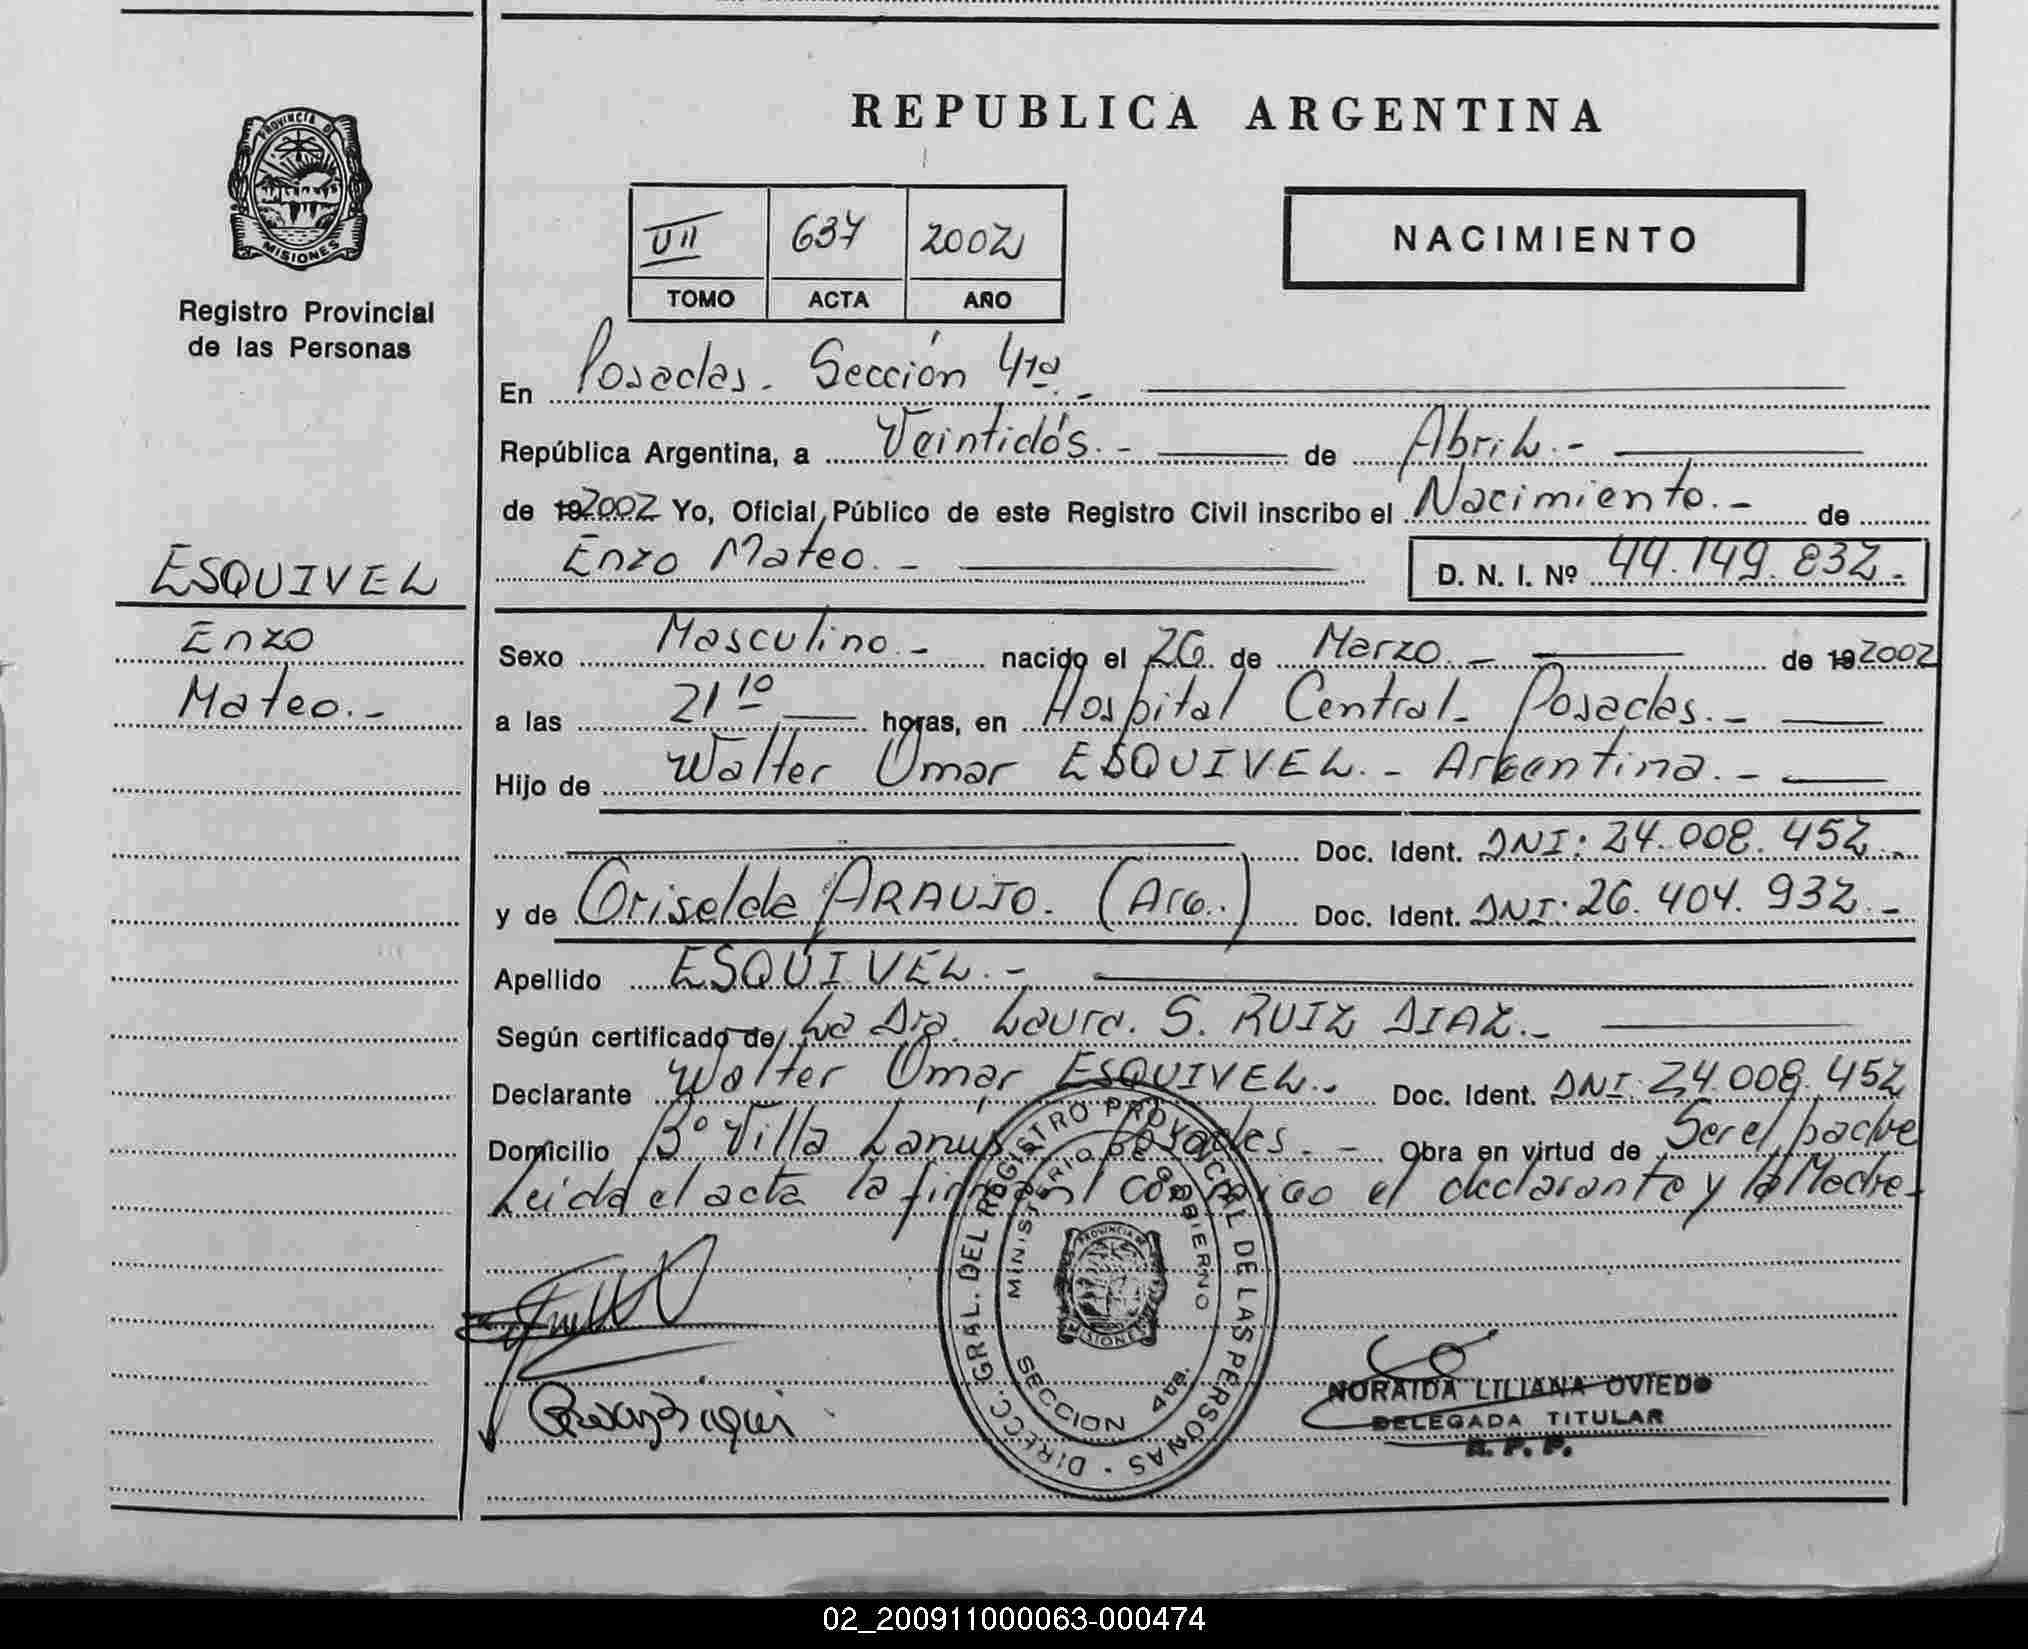 REPUBLICA ARGENTINA
PROVINCIA DE
MISIONES
Registro Provincial
de las Personas
VII 637 2002
TOMO ACTA AÑO
NACIMIENTO
En Posadas. Sección 4ta.-
República Argentina, a Veintidós.- de Abril.-
de 192002 Yo, Oficial Público de este Registro Civil inscribo el Nacimiento.- de
Enzo Mateo.- D. N. I. Nº 44.149.832.-
ESQUIVEL
Enzo
Mateo.-
Sexo Masculino.- nacido el 26 de Marzo.- de 192002
a las 21 10 horas, en Hospital Central. Posadas.-
Hijo de Walter Omar ESQUIVEL.- Argentina.-
Doc. Ident. DNI: 24.008.452.-
y de Griselda ARAUJO. (Arg.) Doc. Ident. DNI: 26.404.932.-
Apellido ESQUIVEL.-
Según certificado de La Dra. Laura. S. RUIZ DIAZ.-
Declarante Walter Omar ESQUIVEL.- Doc. Ident. DNI: 24.008.452
Domicilio Bº Villa Lanús Posadas.- Obra en virtud de Ser el padre
Leida el acta la firman conmigo el declarante y la Madre.-
DIRECC. GRAL. DEL REGISTRO PROVINCIAL DE LAS PERSONAS
MINISTERIO DE GOBIERNO
PROVINCIA DE
MISIONES
SECCION 4ta.
NORAIDA LILIANA OVIEDO
DELEGADA TITULAR
R. P. P.
02_200911000063-000474